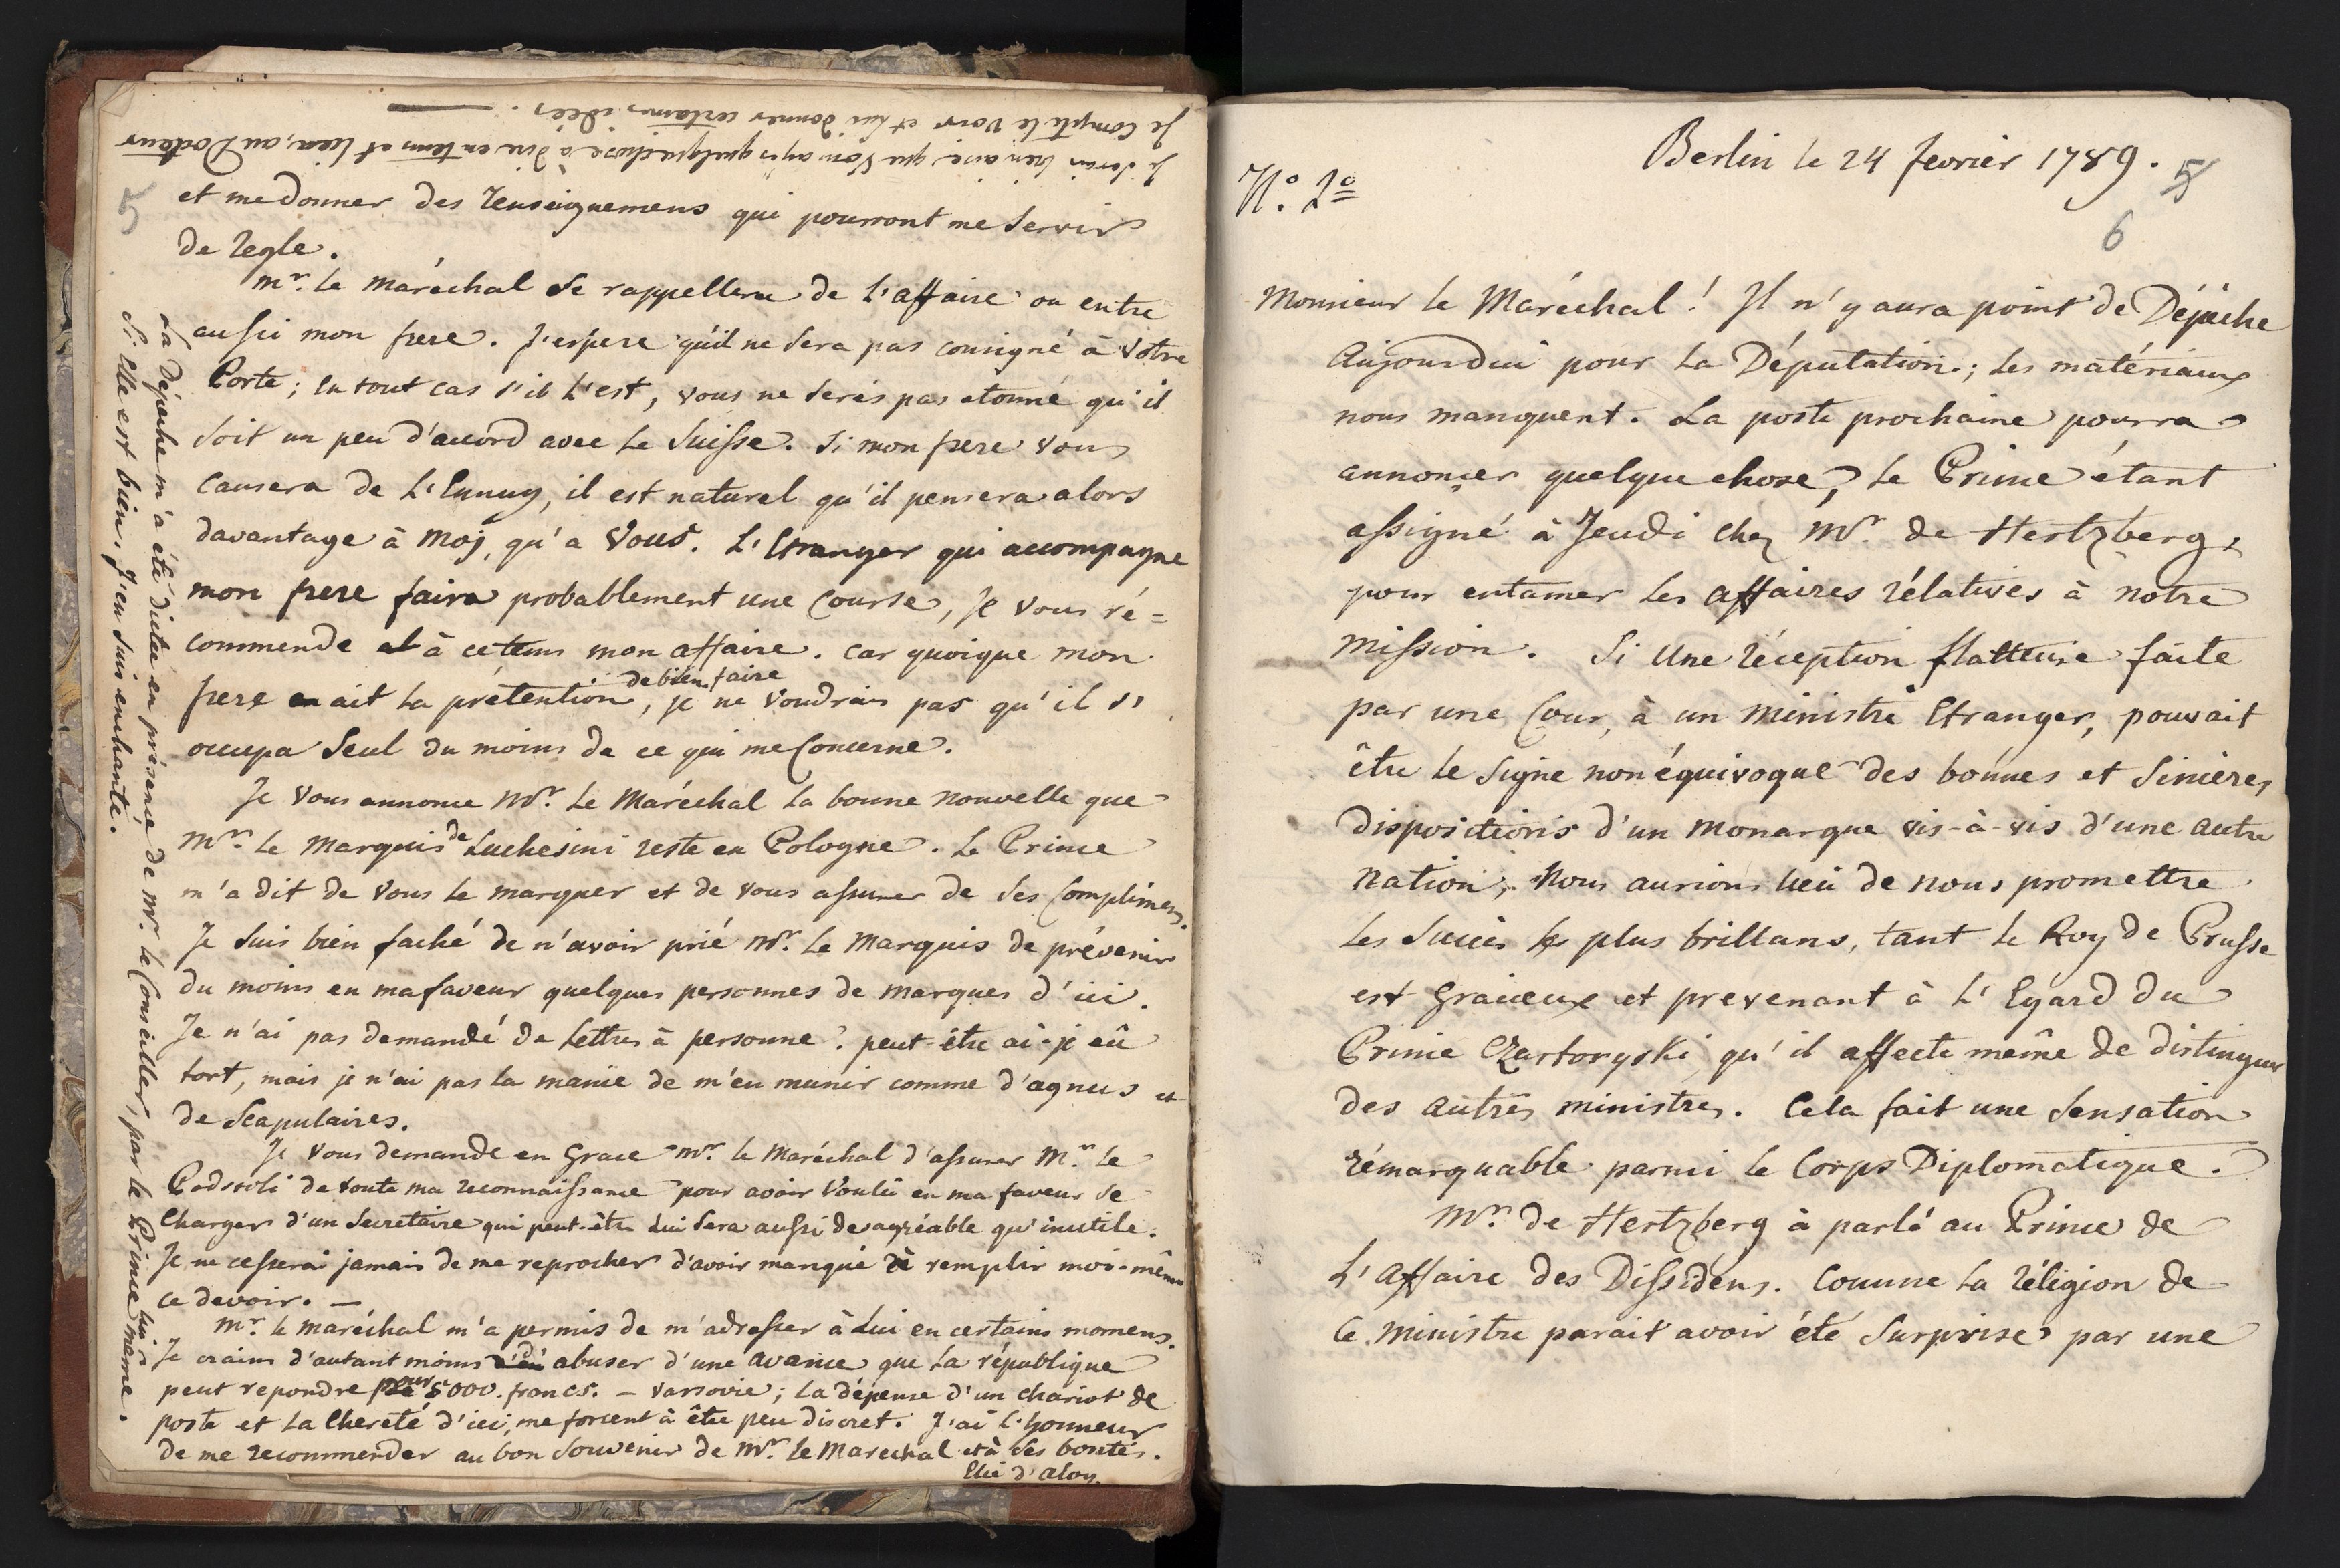 Je serais bien aise que Vous ayés quelque chose à dire en tems et lieu, au Docteur
Je compte le voir et lui donner certaines idées.
5
et me donner des renseignemens qui pourront me servir
de regle.
Mr. le Maréchal se rappellera de l'affaire ou entre
aussi mon frere. J'espere qu'il ne sera pas consigné à Votre
Porte; en tout cas s'il l'est, vous ne serés pas etonné qu'il
soit un peu d'accord avec le Suisse. Si mon frere vous
causera de l'Ennuy, il est naturel qu'il pensera alors
davantage à Moj, qu'a Vous. L'Etranger qui accompagne
mon frere faira probablement une Course, je vous ré=
commende à ce tems mon affaire. Car quoique mon
frere en ait la prétention de bien faire, je ne voudrais pas qu'il s'
occupa Seul du moins de ce qui me Concerne.
Je Vous annonce Mr. le Maréchal la bonne nouvelle que
Mr. le Marquis de Luchesini reste en Pologne. Le Prince
m'a dit de Vous le marquer et de vous assurer de ses Complimens.
Je suis bien faché de n'avoir prié Mr. le Marquis de prévenir
du moins en ma faveur quelques personnes de marques d'ici.
Je n'ai pas demandé de Lettres à personne: peut-être ai-je eû
tort, mais je n'ai pas la manie de m'en munir comme d'agnus et
de Scapulaires.
Je Vous demande en Grace Mr. le Maréchal d'assurer Mr. le
Podstoli de toute ma reconnaissance pour avoir Voulû en ma faveur se
Charger d'un Secretaire qui peut-être Lui sera aussi desagréable qu'inutile.
Je ne cesserai jamais de me reprocher d'avoir manqué à remplir moi-même
ce devoir. —
Mr. le maréchal m'a permis de m'adresser à Lui en certains momens.
Je crains d'autant moins d'abuser d'une avance que la république
peut repondre pour 5000. francs. — Varsovie; la dépense d'un chariot de
poste et la Chereté d'ici, me forcent à être peu discret. J'ai l'honneur
de me recommender au bon Souvenir de Mr. le Marechal et à ses bontés.
Elie d'Aloy.
La Dépeche m'a été dictée en présence de Mr. le Conseiller, par le Prince lui même.
Si Elle est bien, j'en suis enchanté.
Berlin le 24 fevrier 1789.
5
6
No. 2o
Monsieur le Maréchal! Il n'y aura point de Dépêche
Aujourdui pour la Députation; les matériaux
nous manquent. La poste prochaine pourra
annonçer quelque chose, le Prince étant
assigné à Jeudi chez Mr. de Hertzberg,
pour entamer les affaires rélatives à notre
mission. Si Une réception flatteuse faite
par une Cour, à un Ministre Etranger, pouvait
être le signe non équivoque des bonnes et sinceres
dispositions d'un Monarque vis-à-vis d'une autre
Nation, Nous aurions lieu de nous promettre
les succès les plus brillans, tant le Roy de Prusse
est Gracieux et prevenant à l'Egard du
Prince Czartoryski qu'il affecte même de distinguer
des autres ministres. Cela fait une sensation
rémarquable parmi le Corps Diplomatique.
Mr. de Hertzberg à parlé au Prince de
L'affaire des Dissidens. Comme la réligion de
Ce Ministre parait avoir été surprise par une